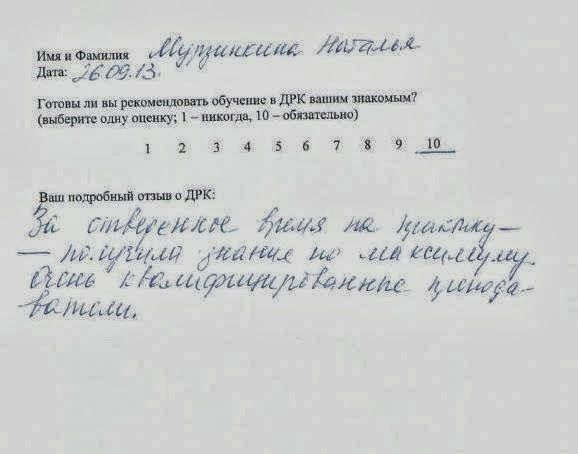 Имя и Фамилия Мурзинкина Наталья
Дата: 26.09.13.
Готовы ли вы рекомендовать обучение в ДРК вашим знакомым?
(выберите одну оценку; 1 – никогда, 10 – обязательно)
1 2 3 4 5 6 7 8 9 10
Ваш подробный отзыв о ДРК:
За отведенное время на практику –
– получила знание по максимуму.
Очень квалифицированные препода-
ватели.